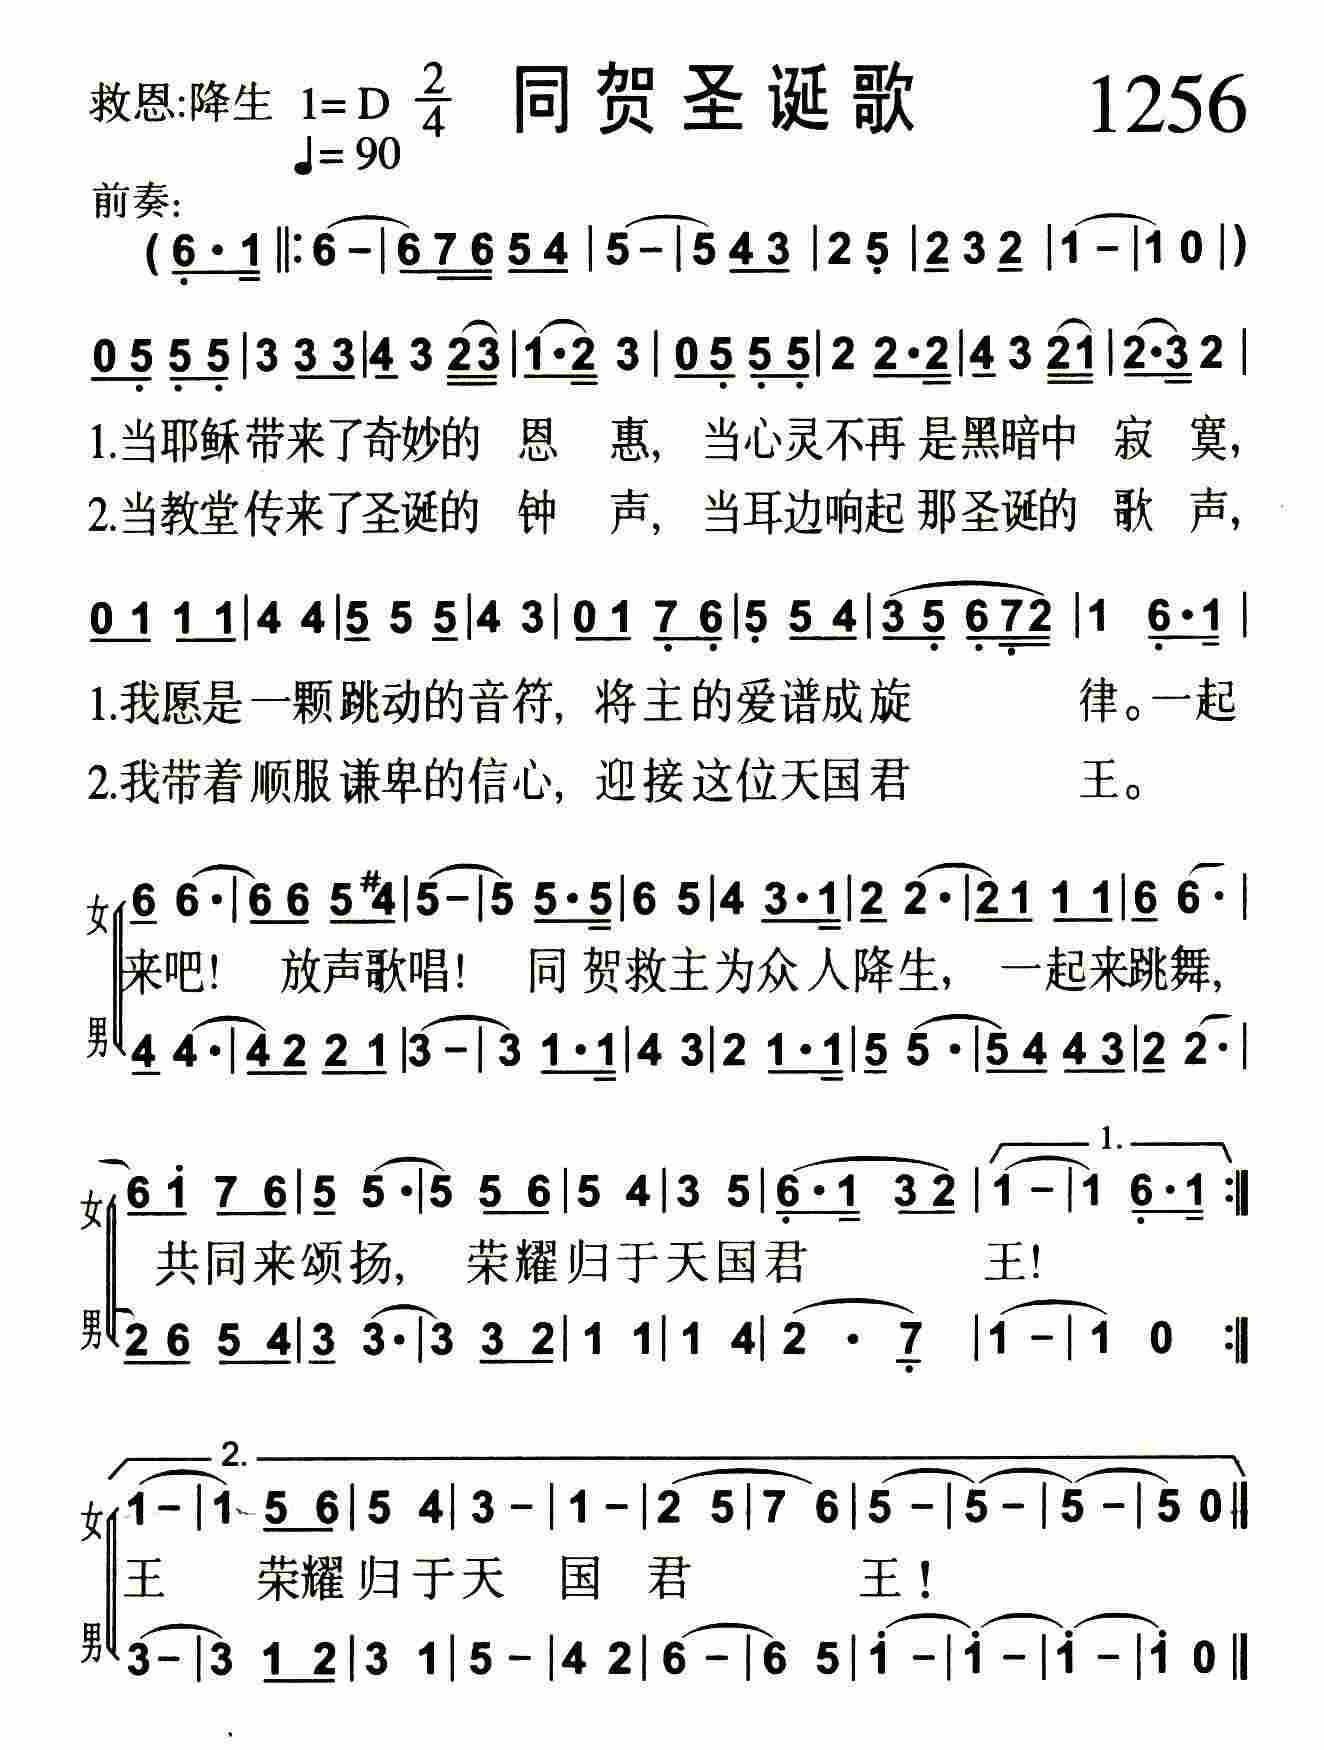 救恩:降生 1=D 2/4 同贺圣诞歌 1256
♩=90
前奏:
(6·1‖:6-|67654|5-|543|25|232|1-|10|)
0555|3 33|4323|1·23|0555|22·2|4321|2·32|
1.当耶稣带来了奇妙的恩惠,当心灵不再是黑暗中寂寞,
2.当教堂传来了圣诞的钟声,当耳边响起那圣诞的歌声,
0111|44|555|43|0176|554|35672|16·1|
1.我愿是一颗跳动的音符,将主的爱谱成旋律。一起
2.我带着顺服谦卑的信心,迎接这位天国君王。
女 66·|665#4|5-|55·5|65|43·1|22·|2111|66·|
来吧!放声歌唱!同贺救主为众人降生,一起来跳舞,
男 44·|4221|3-|31·1|43|21·1|55·|5443|22·|
1.
女 6176|55·|556|54|35|6·132|1-|16·1:‖
共同来颂扬,荣耀归于天国君王!
男 2654|33·|332|11|14|2·7|1-|10:‖
2.
女 1-|156|54|3-|1-|25|76|5-|5-|5-|50‖
王 荣耀归于天国君王!
男 3-|312|31|5-|42|6-|65|1-|1-|1-|10‖